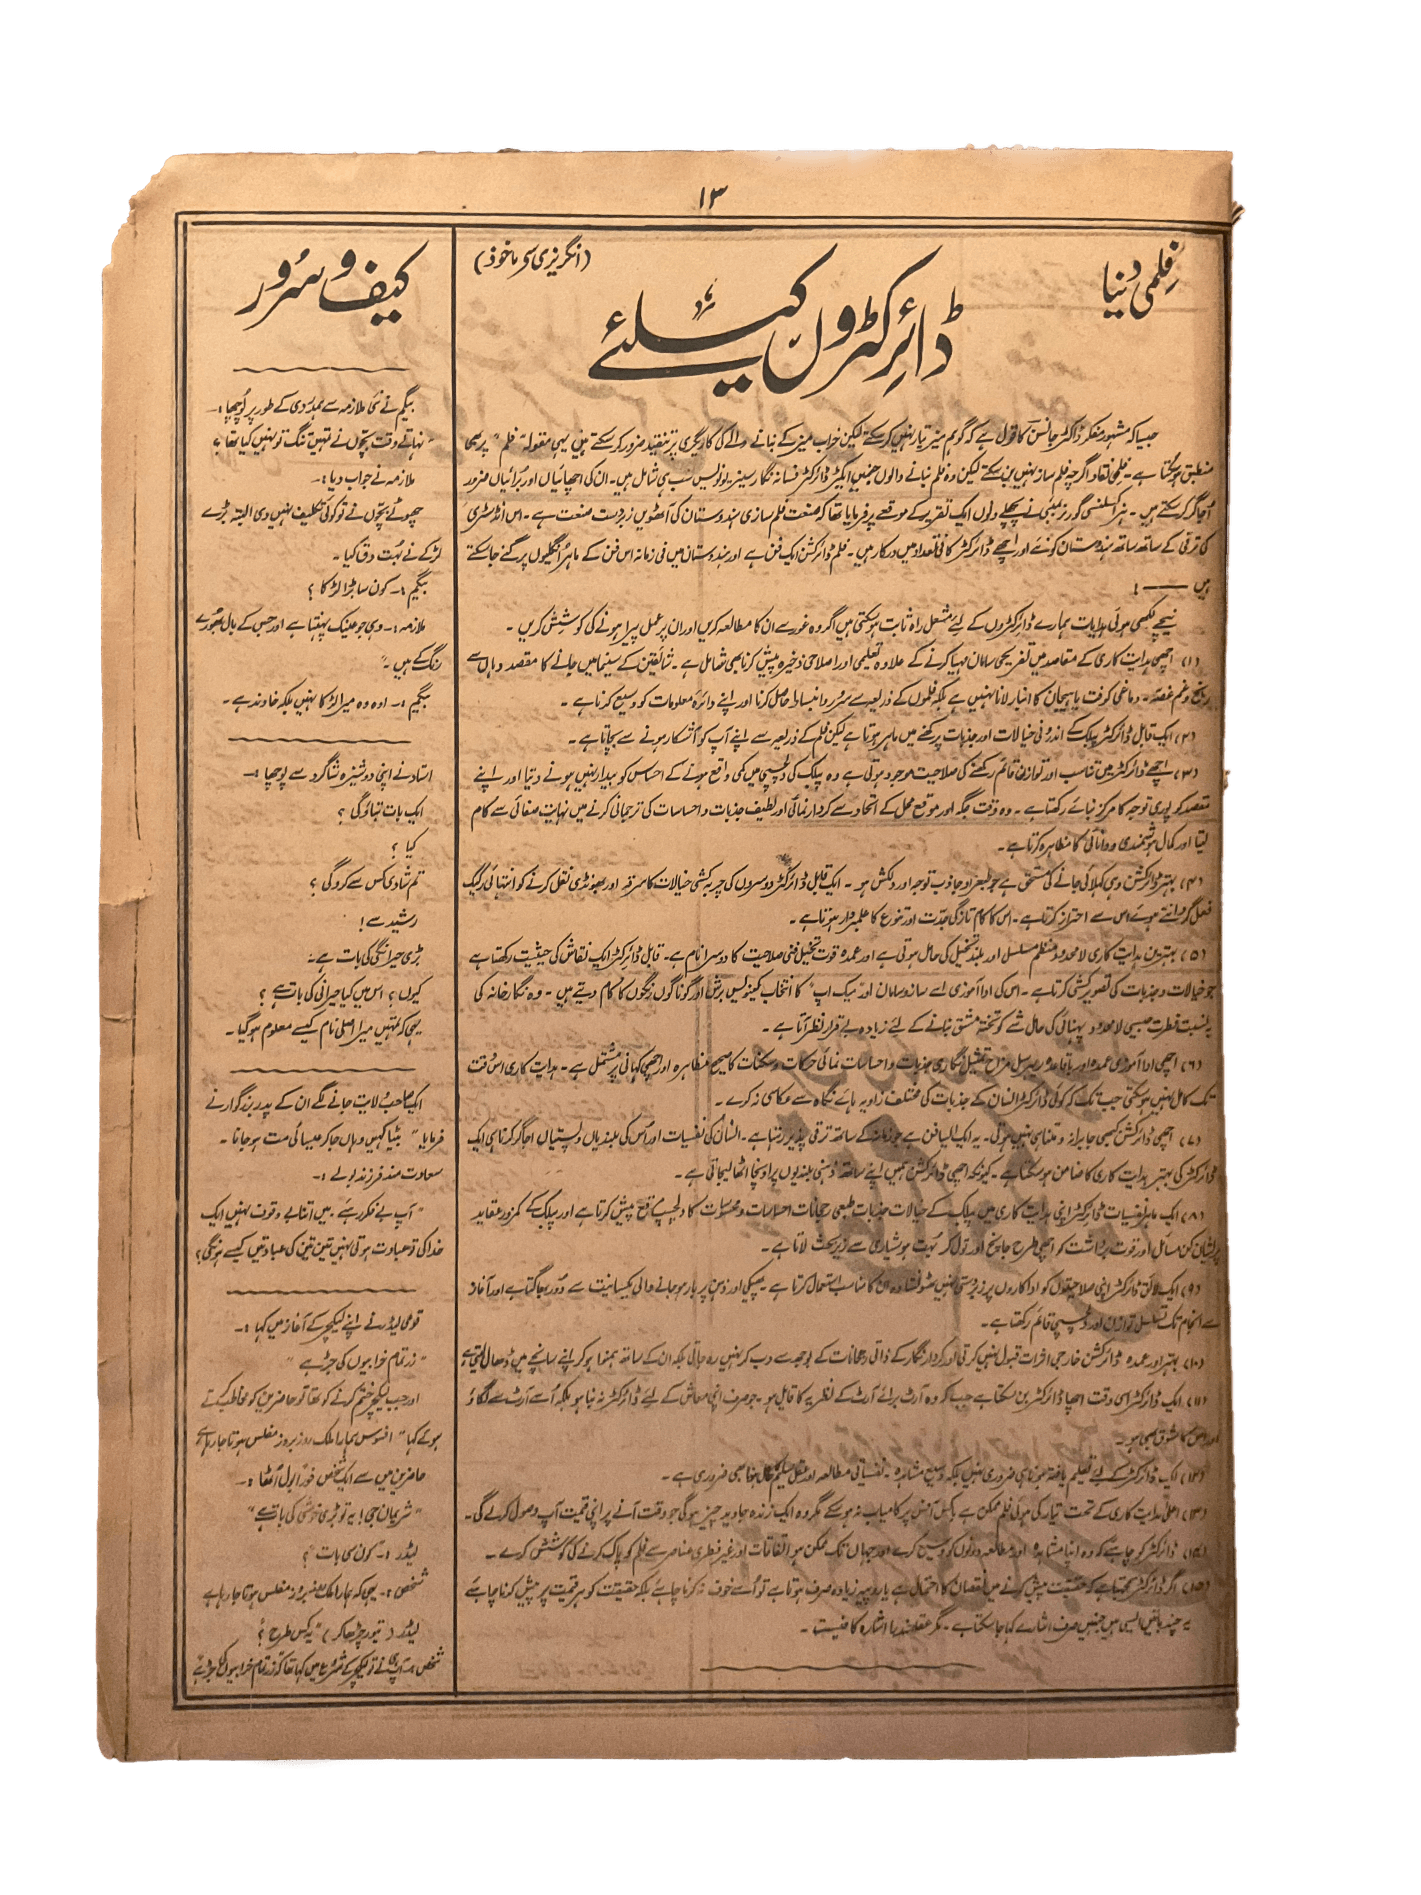 ۱۳
فلمی دنیا
(انگریزی سے ماخوذ)
ڈائرکٹروں کیلئے
جیسا کہ مشہور مفکر ڈاکٹر جانسن کا قول ہے کہ گو ہم میز تیار نہیں کر سکتے لیکن خراب میز کے بنانے والے کی کاریگری پر تنقید ضرور کر سکتے ہیں یہی مقولہ "فلم" پر بھی
منطبق ہو سکتا ہے۔ فلمی نقاد اگرچہ فلم ساز نہیں بن سکتے لیکن وہ فلم بنانے والوں جنمیں ایکٹر ڈائرکٹر فسانہ نگار سینریو نویس سب ہی شامل ہیں۔ ان کی اچھائیاں اور برائیاں ضرور
اُجاگر کر سکتے ہیں۔ ہز اکسلنسی گورنر بمبئی نے پچھلے دنوں ایک تقریر کے موقعے پر فرمایا تھا کہ صنعت فلم سازی ہندوستان کی آٹھویں زبردست صنعت ہے۔ اس انڈسٹری
کی ترقی کے ساتھ ساتھ ہندوستان کو نئے اور اچھے ڈائرکٹر کافی تعداد میں درکار ہیں۔ فلم ڈائرکشن ایک فن ہے اور ہندوستان میں فی زمانہ اس فن کے ماہر اُنگلیوں پر گنے جا سکتے
ہیں ——!
نیچے لکھی ہوئی ہدایات ہمارے ڈائرکٹروں کے لئے مشعل راہ ثابت ہو سکتی ہیں اگر وہ غور سے ان کا مطالعہ کریں اور ان پر عمل پیرا ہونے کی کوشش کریں۔
(۱) اچھی ہدایت کاری کے مقاصد میں تفریحی سامان مہیا کرنے کے علاوہ تعلیمی اور اصلاحی ذخیرہ پیش کرنا بھی شامل ہے۔ شائقین کے سینما میں جانے کا مقصد وہاں سے
رنج و غم غصہ۔ دماغی کوفت یا ہیجان کا انبار لانا نہیں ہے بلکہ فلموں کے ذریعے سرور و انبساط حاصل کرنا اور اپنے دائرہ معلومات کو وسیع کرنا ہے۔
(۲) ایک قابل ڈائرکٹر پبلک کے اندرونی خیالات اور جذبات پرکھنے میں ماہر ہوتا ہے لیکن فلم کے ذریعہ سے اپنے آپ کو آشکار ہونے سے بچاتا ہے۔
(۳) اچھے ڈائرکٹر میں تناسب اور توازن قائم رکھنے کی صلاحیت موجود ہوتی ہے وہ پبلک کی دلچسپی میں کمی واقع ہونے کے احساس کو بیدار نہیں ہونے دیتا اور اپنے
مقصد کو پوری توجہ کا مرکز بنائے رکھتا ہے۔ وہ وقت جگہ اور موقع محل کے اتحاد سے کردار نمائی اور لطیف جذبات و احساسات کی ترجمانی کرنے میں نہایت صفائی سے کام
لیتا اور کمال ہوشمندی و دانائی کا مظاہرہ کرتا ہے۔
(۴) بہتر ڈائرکشن وہی کہلائی جانے کی مستحق ہے جو طبعزاد جاذب توجہ اور دلکش ہو۔ ایک قابل ڈائرکٹر دوسروں کی چربہ کشی خیالات کا سرقہ اور بھونڈی نقل کرنے کو انتہائی رکیک
فعل گردانتے ہوئے اس سے احتراز کرتا ہے۔ اس کا کام تازگی جدت اور تنوع کا علمبردار ہوتا ہے۔
(۵) بہترین ہدایت کاری لامحدود منظم مسلسل اور بلند تخیل کی حامل ہوتی ہے اور عمدہ قوت تخیل فنی صلاحیت کا دوسرا نام ہے۔ قابل ڈائرکٹر ایک نقاش کی حیثیت رکھتا ہے
جو خیالات و جذبات کی تصویر کشی کرتا ہے۔ اس کی ادا آموزی اسے ساز و سامان اور "میک اپ" کا انتخاب کینویس برش اور گوناگوں رنگوں کا کام دیتے ہیں۔ وہ نگار خانہ کی
بہ نسبت فطرت جیسی لامحدود پہنائی کی حامل شے کو تختہ مشق بنانے کے لئے زیادہ بے قرار نظر آتا ہے۔
(۶) اچھی ادا آموزی عمدہ اور باقاعدہ ریہرسل مزاح تمثیل نگاری جذبات و احساسات نمائی حرکات و سکنات کا صحیح مظاہرہ اور اچھی کہانی پر مشتمل ہے۔ ہدایت کاری اس وقت
تک کامل نہیں ہو سکتی جب تک کہ کوئی ڈائرکٹر انسان کے جذبات کی مختلف زاویہ ہائے نگاہ سے عکاسی نہ کرے۔
(۷) اچھی ڈائرکشن کبھی جابرانہ و متناہی نہیں ہوتی۔ یہ ایک ایسا فن ہے جو زمانہ کے ساتھ ترقی پذیر رہتا ہے۔ انسان کی نفسیات اور اُس کی بلندیاں و پستیاں اجاگر کرنا ہی ایک
ڈائرکٹر کی بہتر ہدایت کاری کا ضامن ہو سکتا ہے۔ کیونکہ اچھی ڈائرکشن ہمیں اپنے ساتھ ذہنی بلندیوں پر اونچا اٹھا لیجاتی ہے۔
(۸) ایک ماہر نفسیات ڈائرکٹر اپنی ہدایت کاری میں پبلک کے خیالات جذبات طبعی رحجانات احساسات و محسوسات کا دلچسپ مرقع پیش کرتا ہے اور پبلک کے کمزور عقاید
پریشان کن مسائل اور قوت برداشت کو اچھی طرح جانچ اور تول کر بہت ہوشیاری سے زیر بحث لاتا ہے۔
(۹) ایک لائق ڈائرکٹر اپنی صلاحیتوں کو اداکاروں پر زبردستی نہیں ٹھونستا وہ ان کا مناسب استعمال کرتا ہے۔ پھیکی اور ذہن پر بار ہو جانے والی یکسانیت سے دور بھاگتا ہے اور آغاز
سے انجام تک تسلسل توازن اور دلچسپی قائم رکھتا ہے۔
(۱۰) بہتر اور عمدہ ڈائرکشن خارجی اثرات قبول نہیں کرتی اور کردار نگار کے ذاتی رحجانات کے بوجھ سے دب کر نہیں رہ جاتی بلکہ ان کے ساتھ ہمنوا ہو کر اپنے سانچے میں ڈھال لیتی ہے
(۱۱) ایک ڈائرکٹر اسی وقت اچھا ڈائرکٹر بن سکتا ہے جب کہ وہ آرٹ برائے آرٹ کے نظریہ کا قایل ہو۔ جو صرف اپنی معاش کے لئے ڈائرکٹر نہ بنا ہو بلکہ اُسے آرٹ سے لگاؤ
اور اس کا شوق بھی ہو۔
(۱۲) ایک ڈائرکٹر کے لئے تعلیم یافتہ ہونا ہی ضروری نہیں بلکہ وسیع مشاہدہ۔ نفسیاتی مطالعہ اور عقل سلیم کا حامل ہونا بھی ضروری ہے۔
(۱۳) اعلیٰ ہدایت کاری کے تحت تیار کی ہوئی فلم ممکن ہے بکس آفس پر کامیاب نہ ہو سکے مگر وہ ایک زندہ جاوید چیز ہوگی جو وقت آنے پر اپنی قیمت آپ وصول کر لے گی۔
(۱۴) ڈائرکٹر کو چاہیے کہ وہ اپنا مشاہدہ اور مطالعہ دونوں کو وسیع کرے اور جہاں تک ممکن ہو اتفاقات اور غیر فطری عناصر سے فلم کو پاک کرنے کی کوشش کرے۔
(۱۵) اگر ڈائرکٹر سمجھتا ہے کہ حقیقت پیش کرنے میں نقصان کا احتمال ہے یا روپیہ زیادہ صرف ہوتا ہے تو اُسے خوف نہ کرنا چاہئے بلکہ حقیقت کو ہر قیمت پر پیش کرنا چاہئے
یہ چند باتیں ایسی ہیں جنہیں صرف اشارے کہا جا سکتا ہے۔ مگر عقلمند را اشارہ کافیست۔
کیف و سرور
بیگم نے نئی ملازمہ سے ہمدردی کے طور پر پوچھا:۔
"نہاتے وقت بچوں نے تمہیں تنگ تو نہیں کیا تھا؟
ملازمہ نے جواب دیا:۔
چھوٹے بچوں نے تو کوئی تکلیف نہیں دی البتہ بڑے
لڑکے نے بہت دق کیا۔
بیگم:۔ کون سا بڑا لڑکا؟
ملازمہ:۔ وہی جو عینک پہنتا ہے اور جس کے بال بھورے
رنگ کے ہیں۔"
بیگم:۔ اوہ وہ میرا لڑکا نہیں بلکہ خاوند ہے۔
استاد نے اپنی دوشیزہ شاگرد سے پوچھا:۔
ایک بات بتاؤ گی؟
کیا؟
تم شادی کس سے کرو گی؟
رشید سے!
بڑی حیرانگی کی بات ہے۔
کیوں؟ اس میں کیا حیرانی کی بات ہے؟
یہی کہ تمہیں میرا اصلی نام کیسے معلوم ہو گیا۔
ایک صاحب ولایت جانے لگے ان کے پدر بزرگوار نے
فرمایا "بیٹا کہیں وہاں جا کر عیسائی مت ہو جانا۔
سعادت مند فرزند بولے:۔
"آپ بے فکر رہئے۔ میں اتنا بے وقوف نہیں ایک
خدا کی تو عبادت ہوتی نہیں تین تین کی عبادتیں کیسے ہونگی؟
قومی لیڈر نے اپنے لیکچر کے آغاز میں کہا:۔
"زر تمام خرابیوں کی جڑ ہے"
اور جب لیکچر ختم کرنے کو تھا تو حاضرین کو مخاطب کرتے
ہوئے کہا "افسوس ہمارا ملک روز بروز مفلس ہوتا جا رہا ہے
حاضرین میں سے ایک شخص فوراً بول اُٹھا:۔
"شریمان جی! یہ تو بڑی خوشی کی بات ہے"
لیڈر:۔ "کون سی بات"؟
شخص:۔ یہی کہ ہمارا ملک روز بروز مفلس ہوتا جا رہا ہے
لیڈر (تیور چڑھا کر) "یہ کس طرح"؟
شخص:۔ آپ ہی نے تو لیکچر کے شروع میں کہا تھا کہ زر تمام خرابیوں کی جڑ ہے